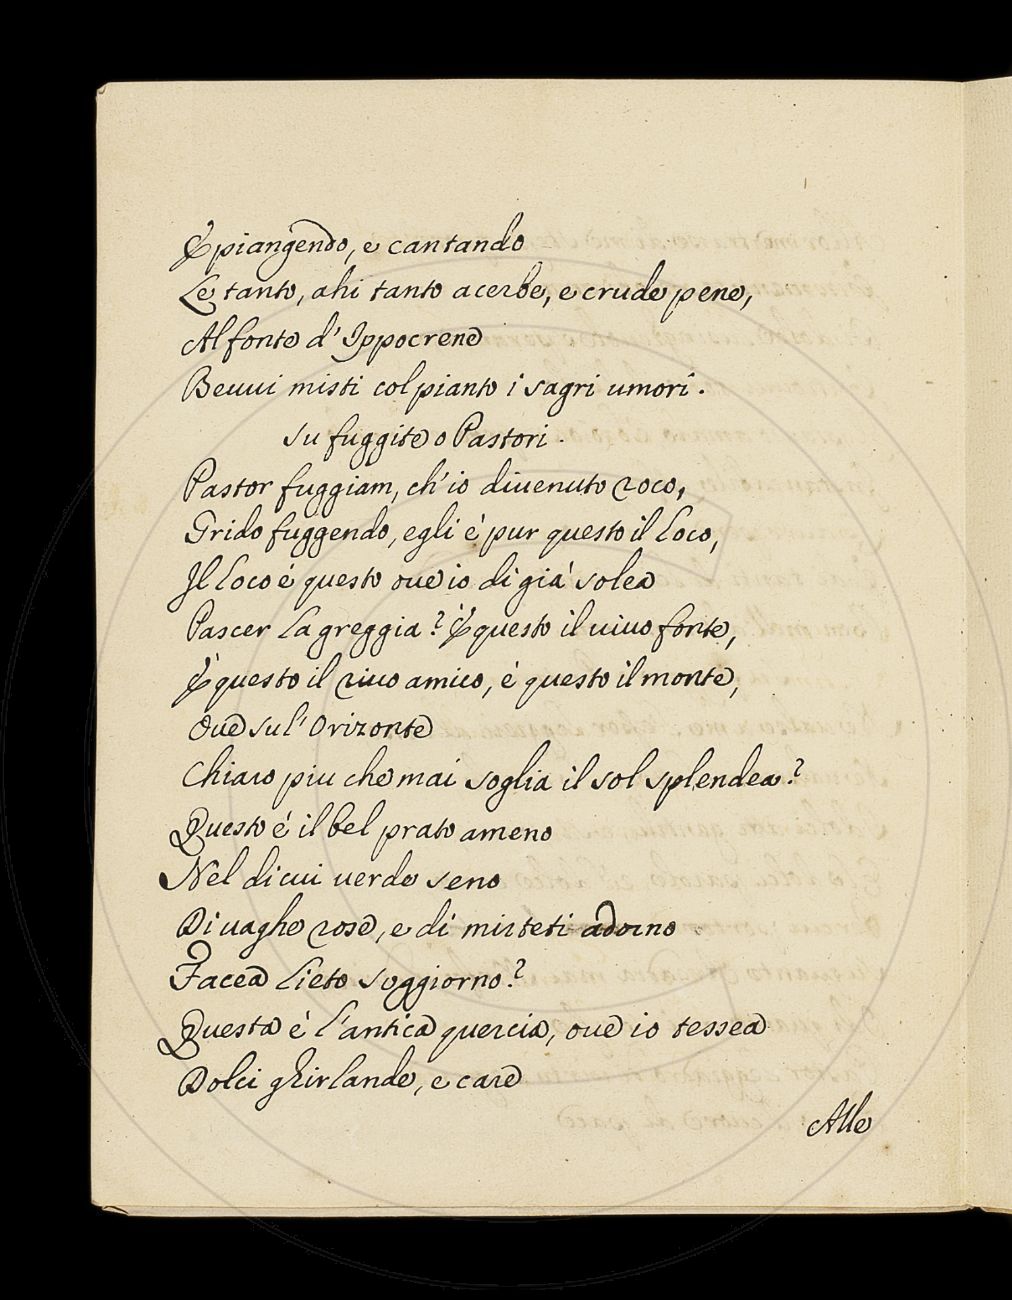 E piangendo, e cantando
Le tanto, ahi tanto acerbe, e crude pene,
Al fonte d' Ippocrene
Beuui misti col pianto i sagri umori.
su fuggite o Pastori.
Pastor fuggiam, ch'io diuenuto roco,
Grido fuggendo, egli é pur questo il loco,
Il loco é questo oue io di giá solea
Pascer la greggia? É questo il uiuo fonte,
É questo il riuo amico, é questo il monte,
Oue sul' Orizonte
Chiaro piu che mai soglia il sol splendea?
Questo é il bel prato ameno
Nel di cui uerde seno
Di uaghe rose, e di mirteti adorno
Facea lieto soggiorno?
Questa é l'antica quercia, oue io tessea
Dolci ghirlande, e care
Alle